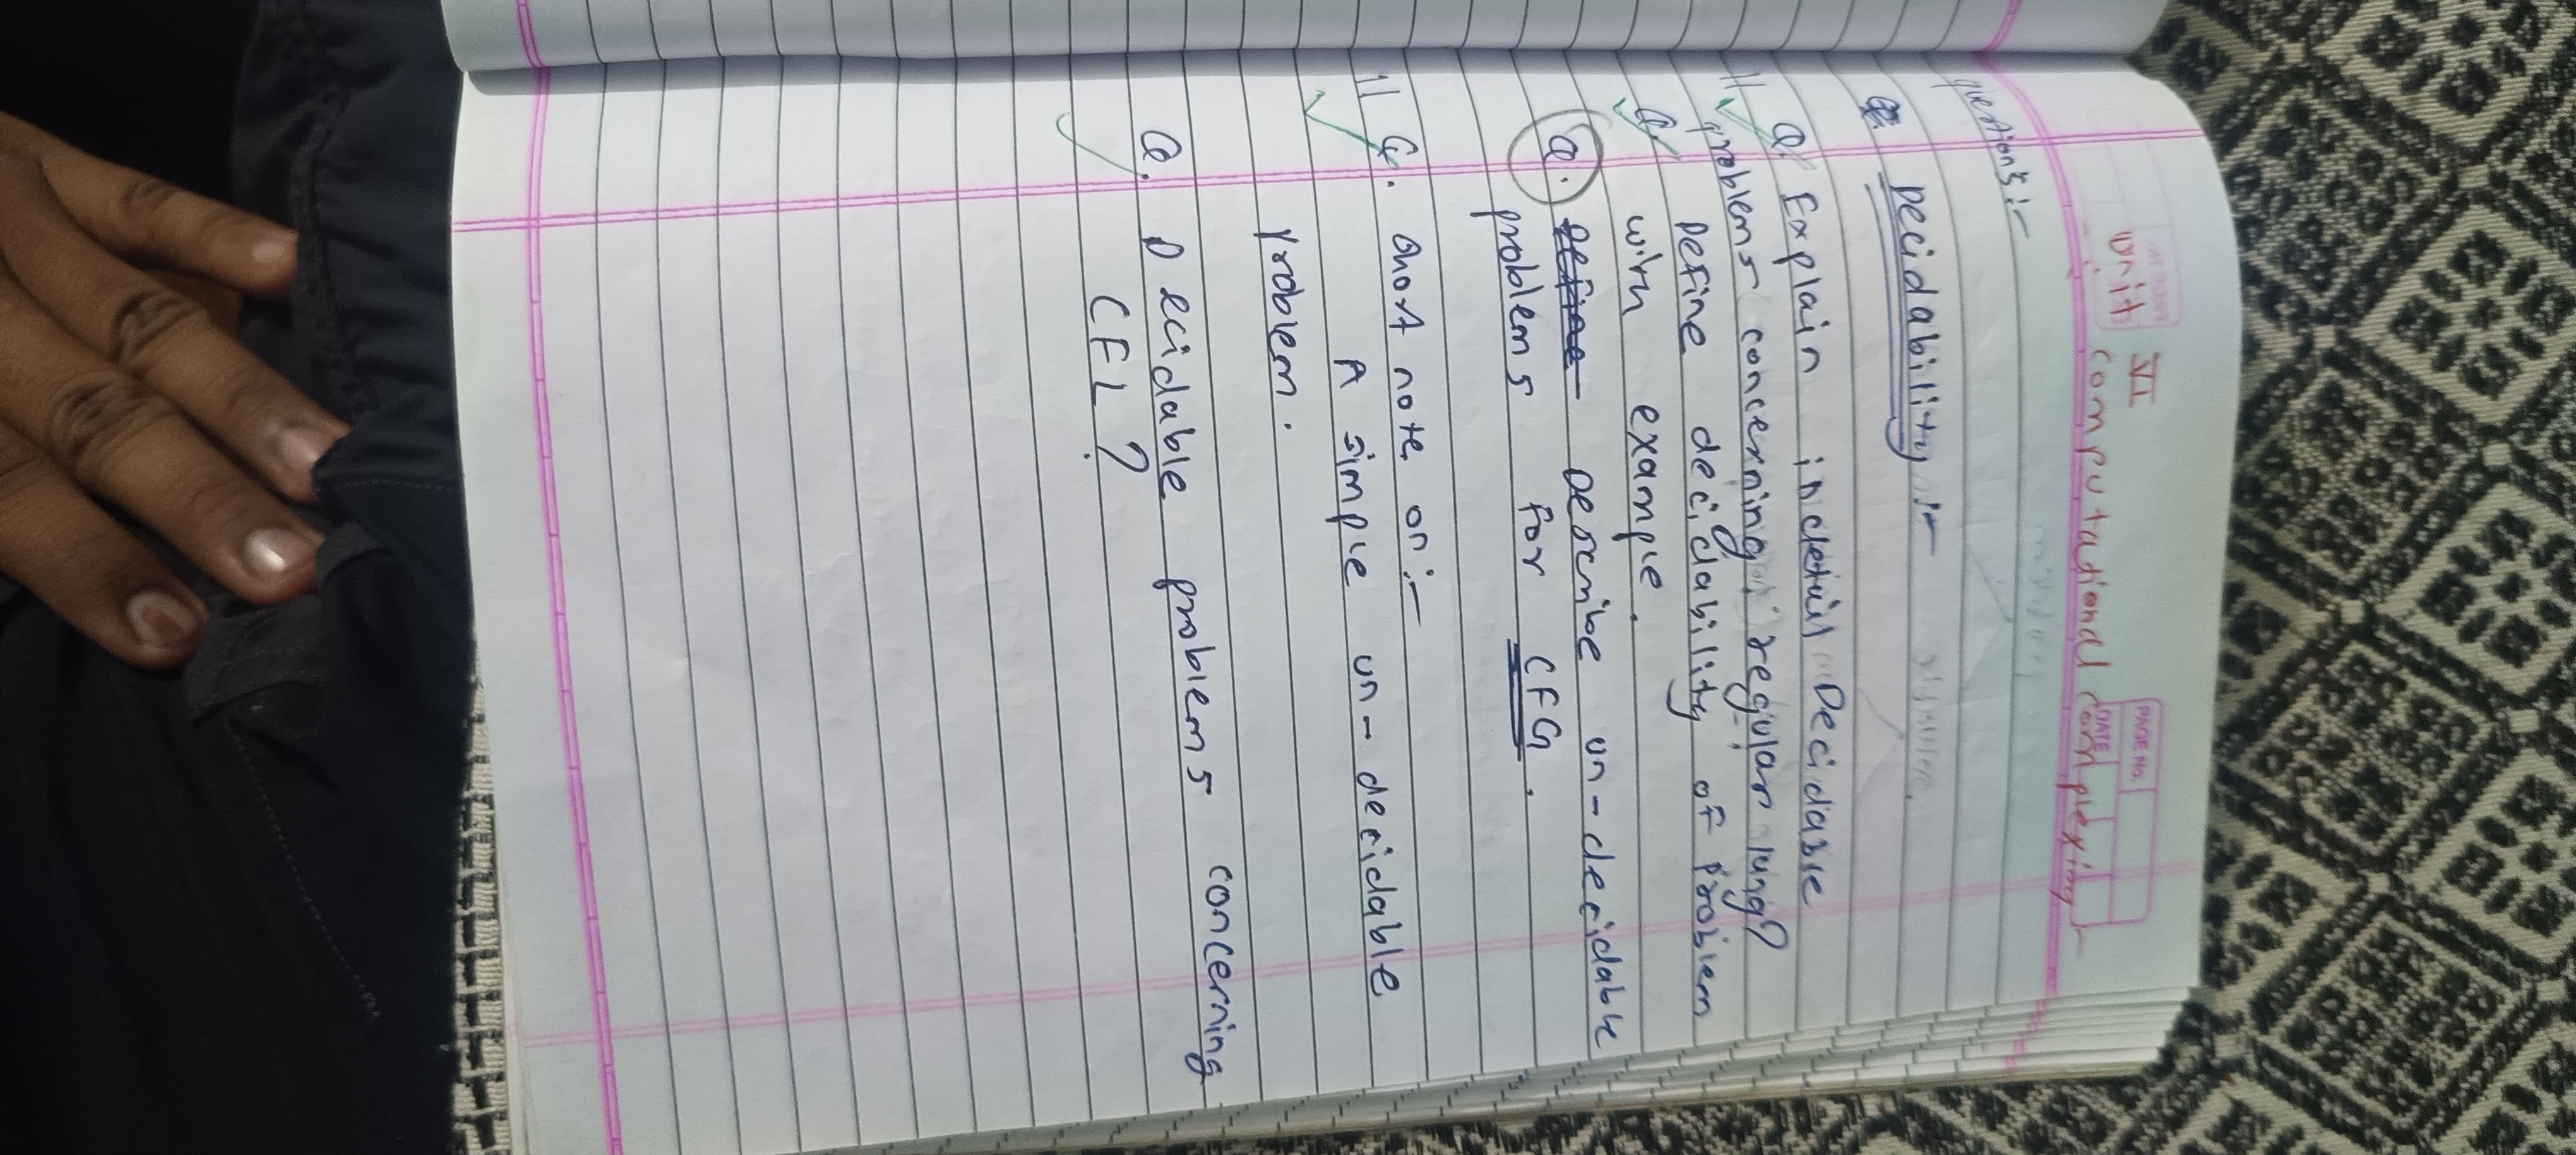 unit VI
PAGE No.
DATE
computational complexing
questions :-
Decidability :-
Q. Explain in detail Decidable
problems concerning regular lang?
Q. Define decidability of problem
with example.
Q. Define Describe un-decidable
problems for CFG.
Q. Short note on :-
A simple un-decidable
problem.
Q. Decidable problems concerning
CFL ?